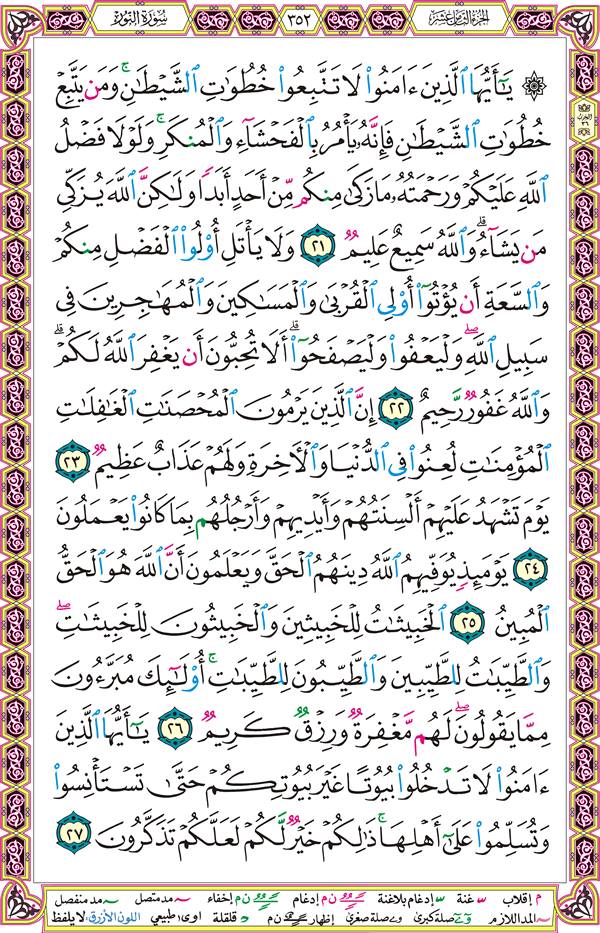 سُورَةُ النُّورِ
٣٥٢
الجُزْءُ الثَّامِنَ عَشَرَ
۞ يَٰٓأَيُّهَا ٱلَّذِينَ ءَامَنُوا۟ لَا تَتَّبِعُوا۟ خُطُوَٰتِ ٱلشَّيْطَٰنِ ۚ وَمَن يَتَّبِعْ
خُطُوَٰتِ ٱلشَّيْطَٰنِ فَإِنَّهُۥ يَأْمُرُ بِٱلْفَحْشَآءِ وَٱلْمُنكَرِ ۚ وَلَوْلَا فَضْلُ
ٱللَّهِ عَلَيْكُمْ وَرَحْمَتُهُۥ مَا زَكَىٰ مِنكُم مِّنْ أَحَدٍ أَبَدًا وَلَٰكِنَّ ٱللَّهَ يُزَكِّى
مَن يَشَآءُ ۗ وَٱللَّهُ سَمِيعٌ عَلِيمٌ ٢١ وَلَا يَأْتَلِ أُو۟لُوا۟ ٱلْفَضْلِ مِنكُمْ
وَٱلسَّعَةِ أَن يُؤْتُوٓا۟ أُو۟لِى ٱلْقُرْبَىٰ وَٱلْمَسَٰكِينَ وَٱلْمُهَٰجِرِينَ فِى
سَبِيلِ ٱللَّهِ ۖ وَلْيَعْفُوا۟ وَلْيَصْفَحُوٓا۟ ۗ أَلَا تُحِبُّونَ أَن يَغْفِرَ ٱللَّهُ لَكُمْ ۗ
وَٱللَّهُ غَفُورٌ رَّحِيمٌ ٢٢ إِنَّ ٱلَّذِينَ يَرْمُونَ ٱلْمُحْصَنَٰتِ ٱلْغَٰفِلَٰتِ
ٱلْمُؤْمِنَٰتِ لُعِنُوا۟ فِى ٱلدُّنْيَا وَٱلْـَٔاخِرَةِ وَلَهُمْ عَذَابٌ عَظِيمٌ ٢٣
يَوْمَ تَشْهَدُ عَلَيْهِمْ أَلْسِنَتُهُمْ وَأَيْدِيهِمْ وَأَرْجُلُهُم بِمَا كَانُوا۟ يَعْمَلُونَ
٢٤ يَوْمَئِذٍ يُوَفِّيهِمُ ٱللَّهُ دِينَهُمُ ٱلْحَقَّ وَيَعْلَمُونَ أَنَّ ٱللَّهَ هُوَ ٱلْحَقُّ
ٱلْمُبِينُ ٢٥ ٱلْخَبِيثَٰتُ لِلْخَبِيثِينَ وَٱلْخَبِيثُونَ لِلْخَبِيثَٰتِ ۖ
وَٱلطَّيِّبَٰتُ لِلطَّيِّبِينَ وَٱلطَّيِّبُونَ لِلطَّيِّبَٰتِ ۚ أُو۟لَٰٓئِكَ مُبَرَّءُونَ
مِمَّا يَقُولُونَ ۖ لَهُم مَّغْفِرَةٌ وَرِزْقٌ كَرِيمٌ ٢٦ يَٰٓأَيُّهَا ٱلَّذِينَ
ءَامَنُوا۟ لَا تَدْخُلُوا۟ بُيُوتًا غَيْرَ بُيُوتِكُمْ حَتَّىٰ تَسْتَأْنِسُوا۟
وَتُسَلِّمُوا۟ عَلَىٰٓ أَهْلِهَا ۚ ذَٰلِكُمْ خَيْرٌ لَّكُمْ لَعَلَّكُمْ تَذَكَّرُونَ ٢٧
م إقلاب غنة إدغام بلاغنة ن م إدغام ن م إخفاء مد متصل مد منفصل
المد اللازم صلة كبرى صلة صغرى إظهار ن م قلقلة اوى: طبيعي اللون الأزرق: لا يلفظ